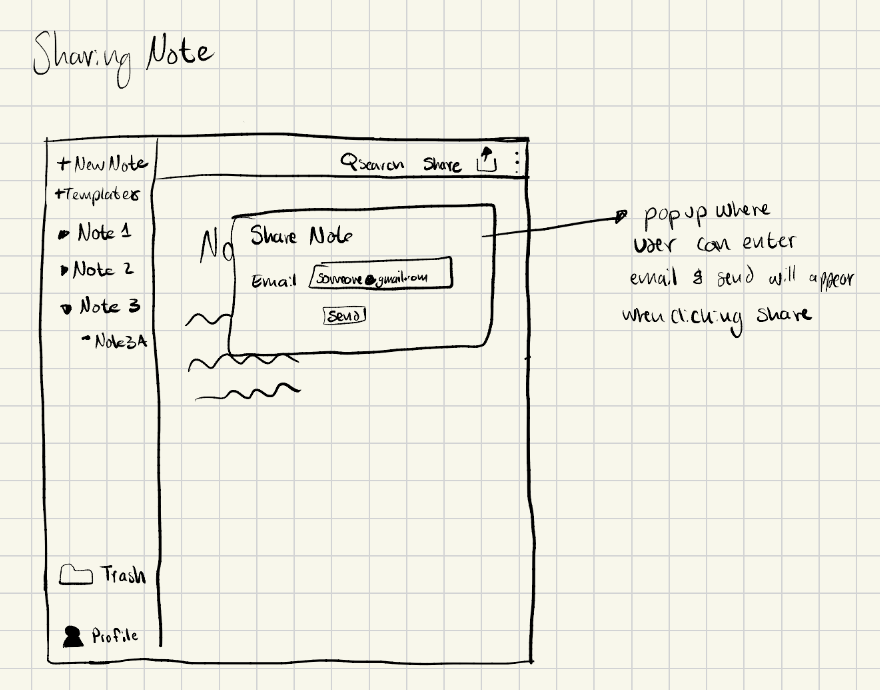 Sharing Note
+ New Note
+Templates
Note 1
Note 2
Note 3
Note3A
Trash
Profile
Search Share
No
Share Note
Email someone@gmail.com
Send
popup where
user can enter
email & send will appear
when clicking share